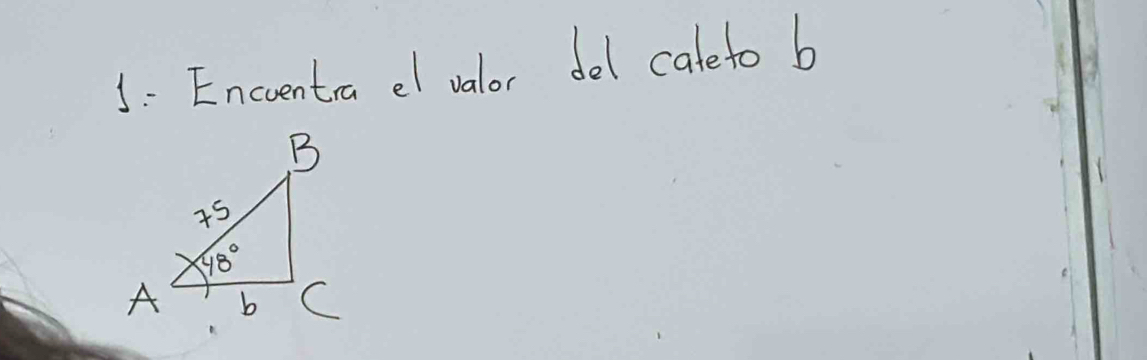 1.- Encuentra el valor del cateto b
B
75
48°
A b C